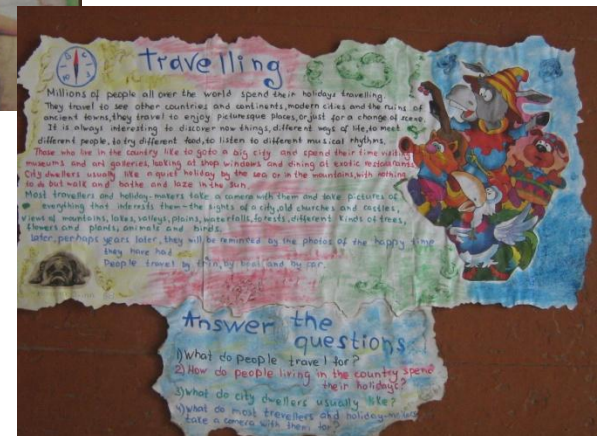 Travelling
Millions of people all over the world spend their holidays travelling.
They travel to see other countries and continents, modern cities and the ruins of
ancient towns, they travel to enjoy picturesque places, or just for a change of scene.
It is always interesting to discover new things, different ways of life, to meet
different people, to try different food, to listen to different musical rhythms.
Those who live in the country like to go to a big city and spend their time visiting
museums and art galleries, looking at shop windows and dining at exotic restaurants.
City dwellers usually like a quiet holiday by the sea or in the mountains, with nothing
to do but walk and bathe and laze in the sun.
Most travellers and holiday-makers take a camera with them and take pictures of
everything that interests them - the sights of a city, old churches and castles,
views of mountains, lakes, valleys, plains, waterfalls, forests, different kinds of trees,
flowers and plants, animals and birds.
Later, perhaps years later, they will be reminded by the photos of the happy time
they have had.
People travel by train, by boat and by car.
Answer the
questions:
1) What do people travel for?
2) How do people living in the country spend
their holidays?
3) What do city dwellers usually like?
4) What do most travellers and holiday-makers
take a camera with them for?